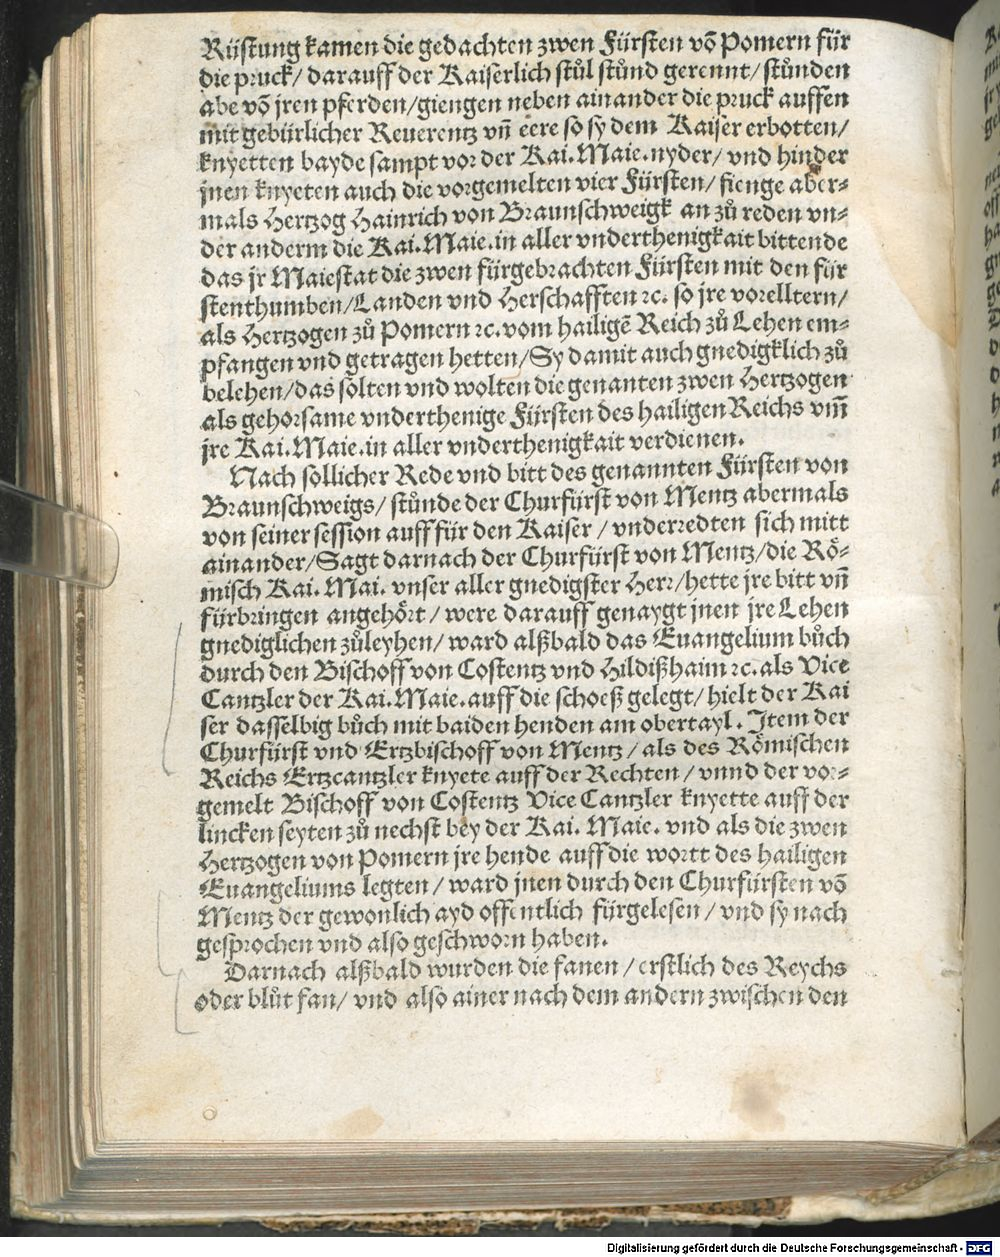 Rüstung kamen die gedachten zwen Fürsten võ Pomern für
die pruck/ darauff der Kaiserlich stůl stůnd gerennt/ stůnden
abe võ jren pferden/ giengen neben ainander die pruck auffen
mit gebürlicher Reuerentz vñ eere so sy dem Kaiser erbotten/
knyetten bayde sampt vor der Kai. Maie. nyder/ vnd hinder
jnen knyeten auch die vorgemelten vier Fürsten/ fienge aber⸗
mals Hertzog Hainrich von Braunschweigk an zů reden vn⸗
der anderm die Kai. Maie. in aller vnderthenigkait bittende
das jr Maiestat die zwen fürgebrachten Fürsten mit den für
stenthumben/ Landen vnd Herschafften ꝛc. so jre vorelltern/
als Hertzogen zů Pomern ꝛc. vom hailigẽ Reich zů Lehen em⸗
pfangen vnd getragen hetten/ Sy damit auch gnedigklich zů
belehen/ das solten vnd wolten die genanten zwen Hertzogen
als gehorsame vnderthenige Fürsten des hailigen Reichs vm̃
jre Kai. Maie. in aller vnderthenigkait verdienen.
Nach sollicher Rede vnd bitt des genannten Fürsten von
Braunschweigs/ stůnde der Churfürst von Mentz abermals
von seiner session auff für den Kaiser / vnderredten sich mitt
ainander/ Sagt darnach der Churfürst von Mentz/ die Rö⸗
misch Kai. Mai. vnser aller gnedigster Herr/ hette jre bitt vñ
fürbringen angehört/ were darauff genaygt jnen jre Lehen
gnediglichen zůleyhen/ ward alßbald das Euangelium bůch
durch den Bischoff von Costentz vnd Hildißhaim ꝛc. als Vice
Cantzler der Kai. Maie. auff die schoeß gelegt/ hielt der Kai
ser dasselbig bůch mit baiden henden am obertayl. Item der
Churfürst vnd Ertzbischoff von Mentz/ als des Römischen
Reichs Ertzcantzler knyete auff der Rechten/ vnnd der vor⸗
gemelt Bischoff von Costentz Vice Cantzler knyette auff der
lincken seyten zů nechst bey der Kai. Maie. vnd als die zwen
Hertzogen von Pomern jre hende auff die wortt des hailigen
Euangeliums legten/ ward jnen durch den Churfürsten võ
Mentz der gewonlich ayd offentlich fürgelesen/ vnd sy nach
gesprochen vnd also geschworn haben.
Darnach alßbald wurden die fanen/ erstlich des Reychs
oder blůt fan/ vnd also ainer nach dem andern zwischen den
Digitalisierung gefördert durch die Deutsche Forschungsgemeinschaft - DFG